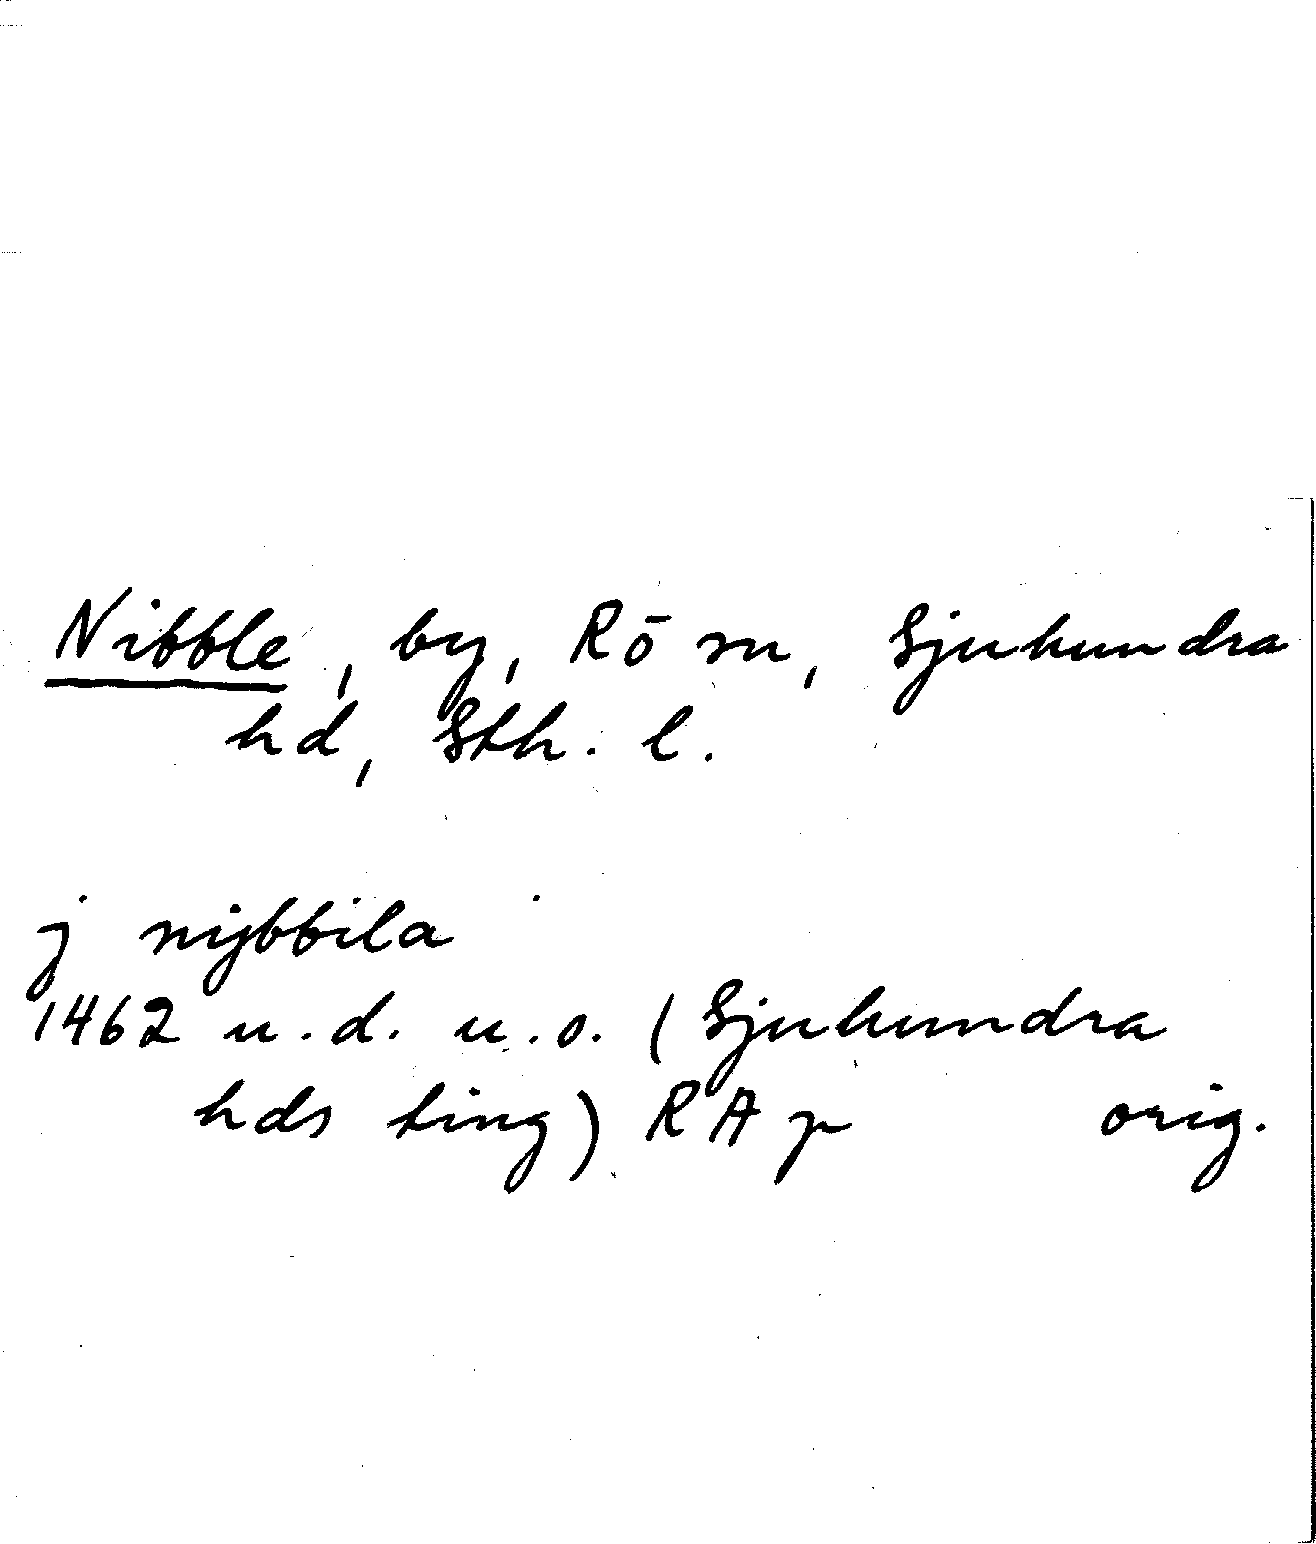 Nibble, by, Rö sn, Sjuhundra
hd, Sth. l.
j nijbbila
1462 u.d. u.o. (Sjuhundra
hds ting) RAp orig.